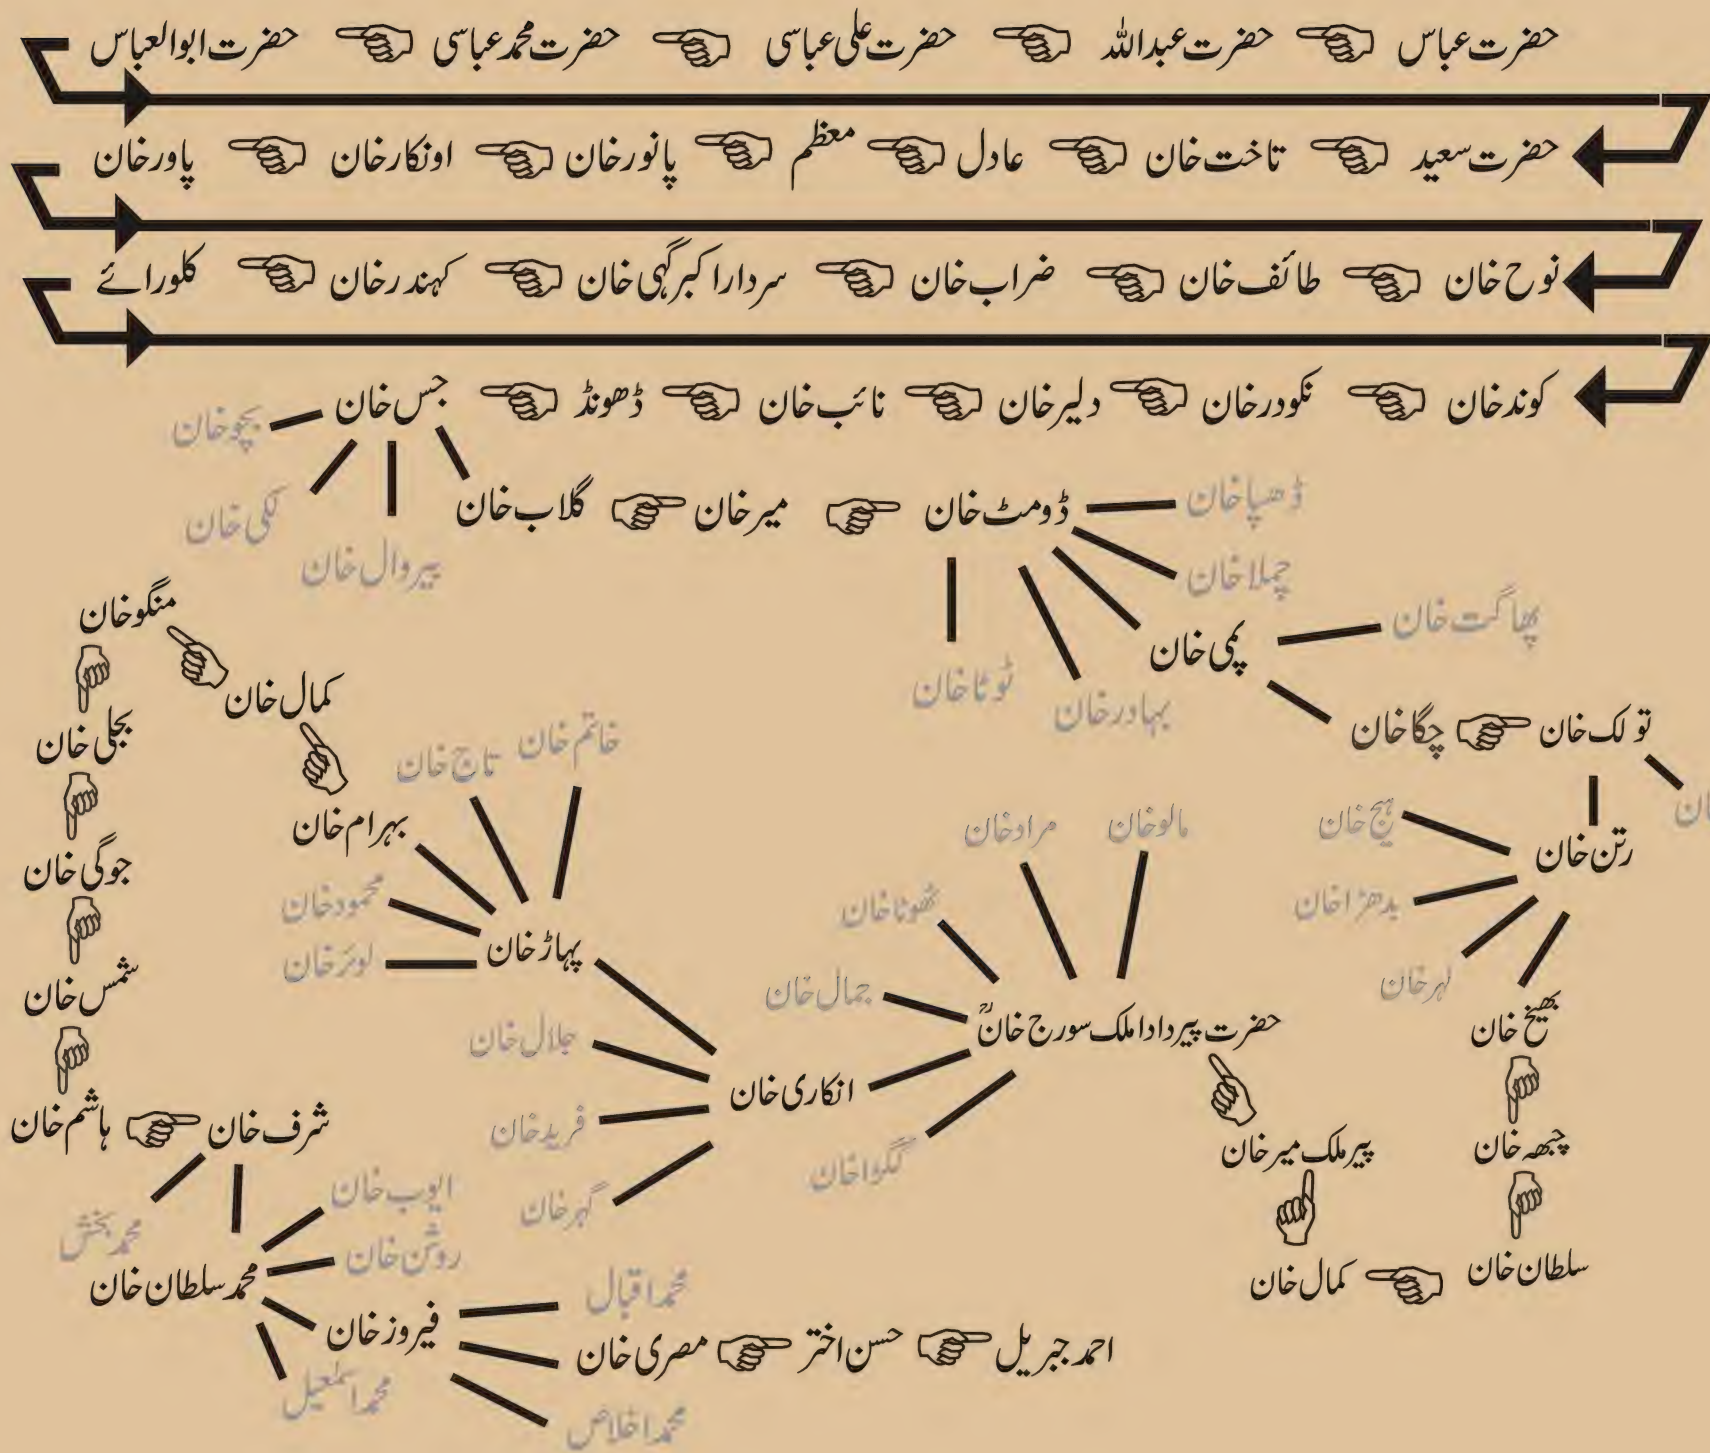 حضرت عباس حضرت عبداللہ حضرت علی عباسی حضرت محمد عباسی حضرت ابوالعباس
حضرت سعید تاخت خان عادل معظم پانور خان اونکار خان پاور خان
نوح خان طائف خان ضراب خان سردار اکبر گہی خان کہندر خان کلورائے
کوند خان نکودر خان دلیر خان نائب خان ڈھونڈ جس خان
بچو خان
لکی خان
پیروال خان
گلاب خان میر خان ڈومٹ خان
ڈھپا خان
چملا خان
پمی خان
بہادر خان
ٹوٹا خان
پھاگت خان
چگا خان تولک خان
رتن خان
ہیج خان
بدھڑا خان
لہر خان
بھیخ خان
چبھہ خان
سلطان خان کمال خان
پیر ملک میر خان
حضرت پیر دادا ملک سورج خانؒ
مالو خان
مراد خان
ٹھوٹا خان
جمال خان
انکاری خان
گگڑا خان
پہاڑ خان
جلال خان
فرید خان
گہر خان
خاتم خان
تاج خان
بہرام خان
محمود خان
کمال خان
منگو خان
بجلی خان
جوگی خان
شمس خان
ہاشم خان شرف خان
محمد بخش
محمد سلطان خان
ایوب خان
روشن خان
فیروز خان
محمد اسمٰعیل
محمد اقبال
مصری خان حسن اختر احمد جبریل
محمد اخلاص